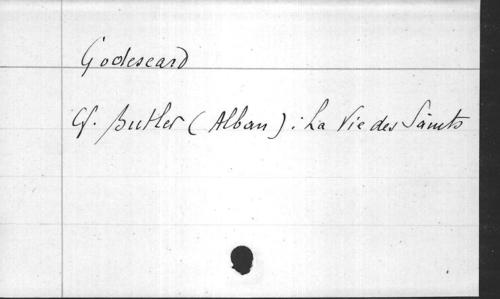 Godescard
Cf. Butler (Alban) : La Vie des Saints